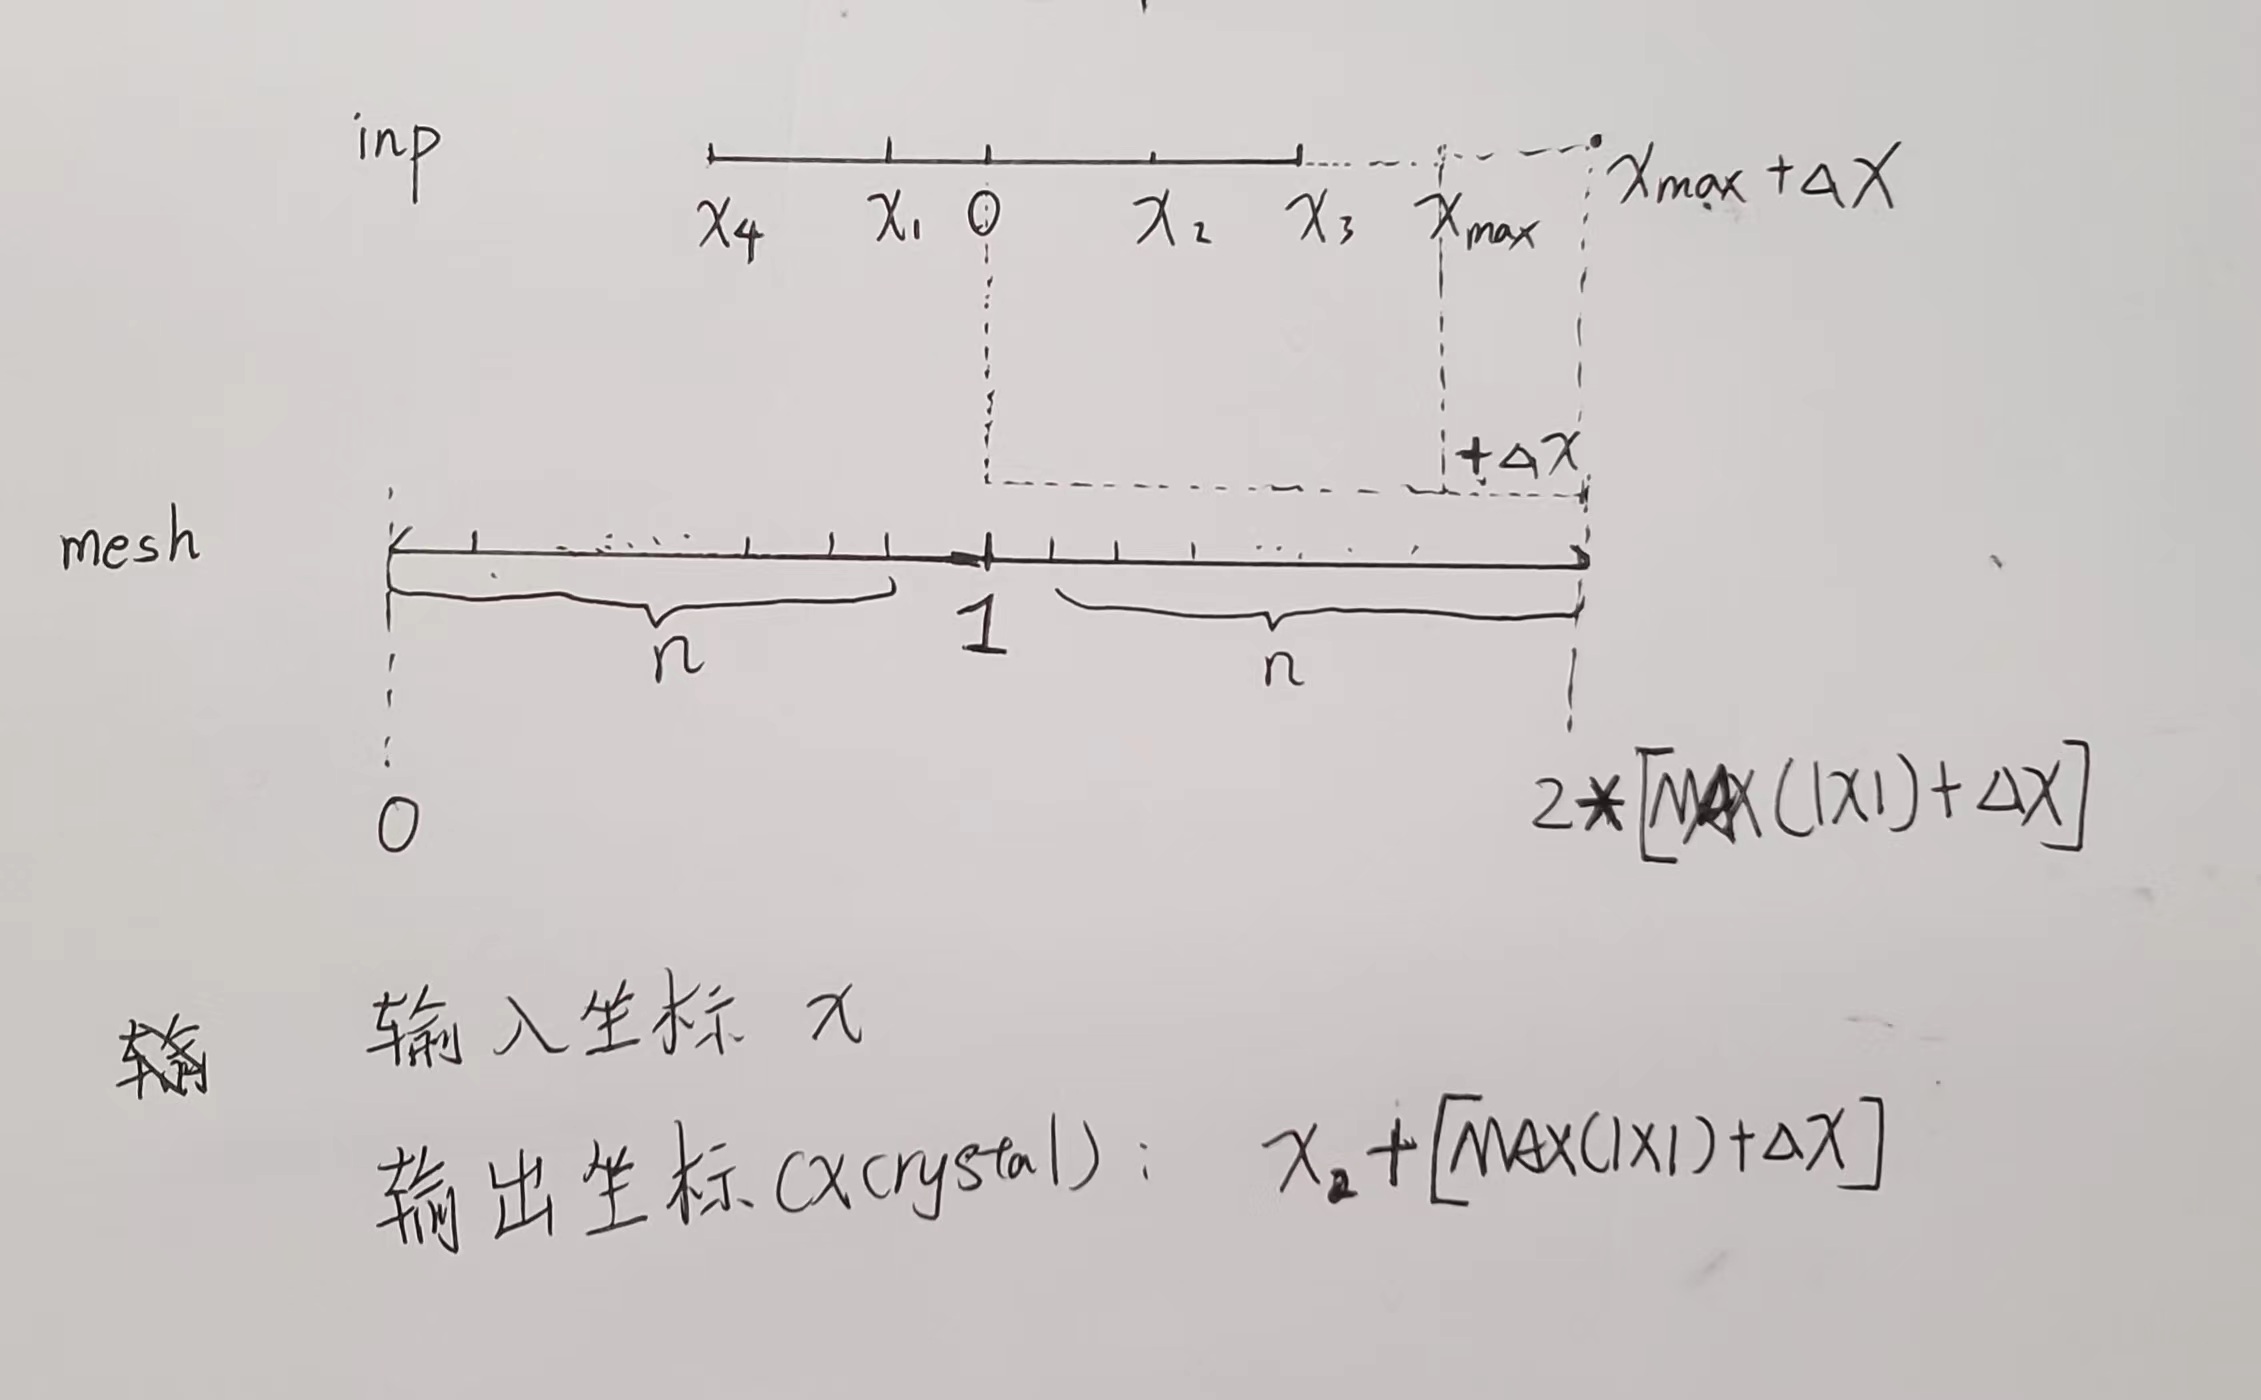 inp
x₄ x₁ 0 x₂ x₃ xmax xmax + Δx
+Δx
mesh
n 1 n
0 2*[MAX(|X|)+ΔX]
输入坐标 x
输出坐标(xcrystal): x₂+[MAX(|X|)+ΔX]